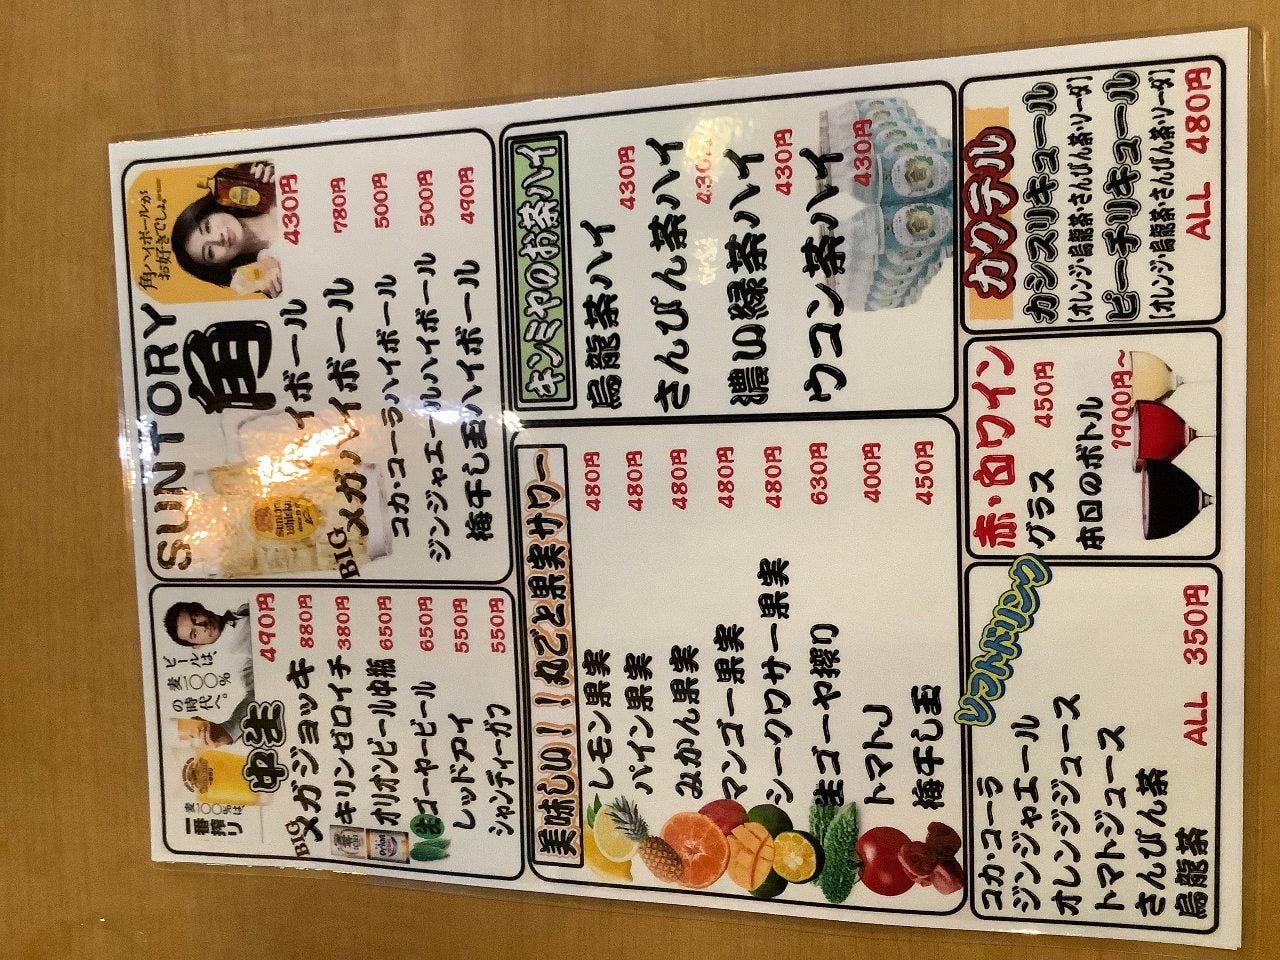 ビールは、
麦一〇〇%
の時代へ。
麦一〇〇%は、
一番搾り
中生 490円
BIG メガジョッキ 880円
キリンゼロイチ 380円
オリオンビール中瓶 650円
生ゴーヤービール 650円
レッドアイ 550円
シャンディーガフ 550円
SUNTORY
角
角ハイボールが
お好きでしょ
イボール 430円
BIG メガハイボール 780円
コカ・コーラハイボール 500円
ジンジャエールハイボール 500円
梅干し玉ハイボール 490円
美味しい!!丸ごと果実サワー
レモン果実 480円
パイン果実 480円
みかん果実 480円
マンゴー果実 480円
シークワサー果実 480円
生ゴーヤ搾り 630円
トマトJ 400円
梅干し玉 450円
キンミヤのお茶ハイ
烏龍茶ハイ 430円
さんぴん茶ハイ 430円
濃い緑茶ハイ 430円
ウコン茶ハイ 430円
ソフトドリンク
コカ・コーラ
ジンジャエール
オレンジジュース
トマトジュース
さんぴん茶
烏龍茶
ALL 350円
赤・白ワイン
グラス 450円
本日のボトル
1900円〜
カクテル
カシスリキュール
[オレンジ・烏龍茶・さんぴん茶・ソーダ]
ピーチリキュール
[オレンジ・烏龍茶・さんぴん茶・ソーダ]
ALL 480円